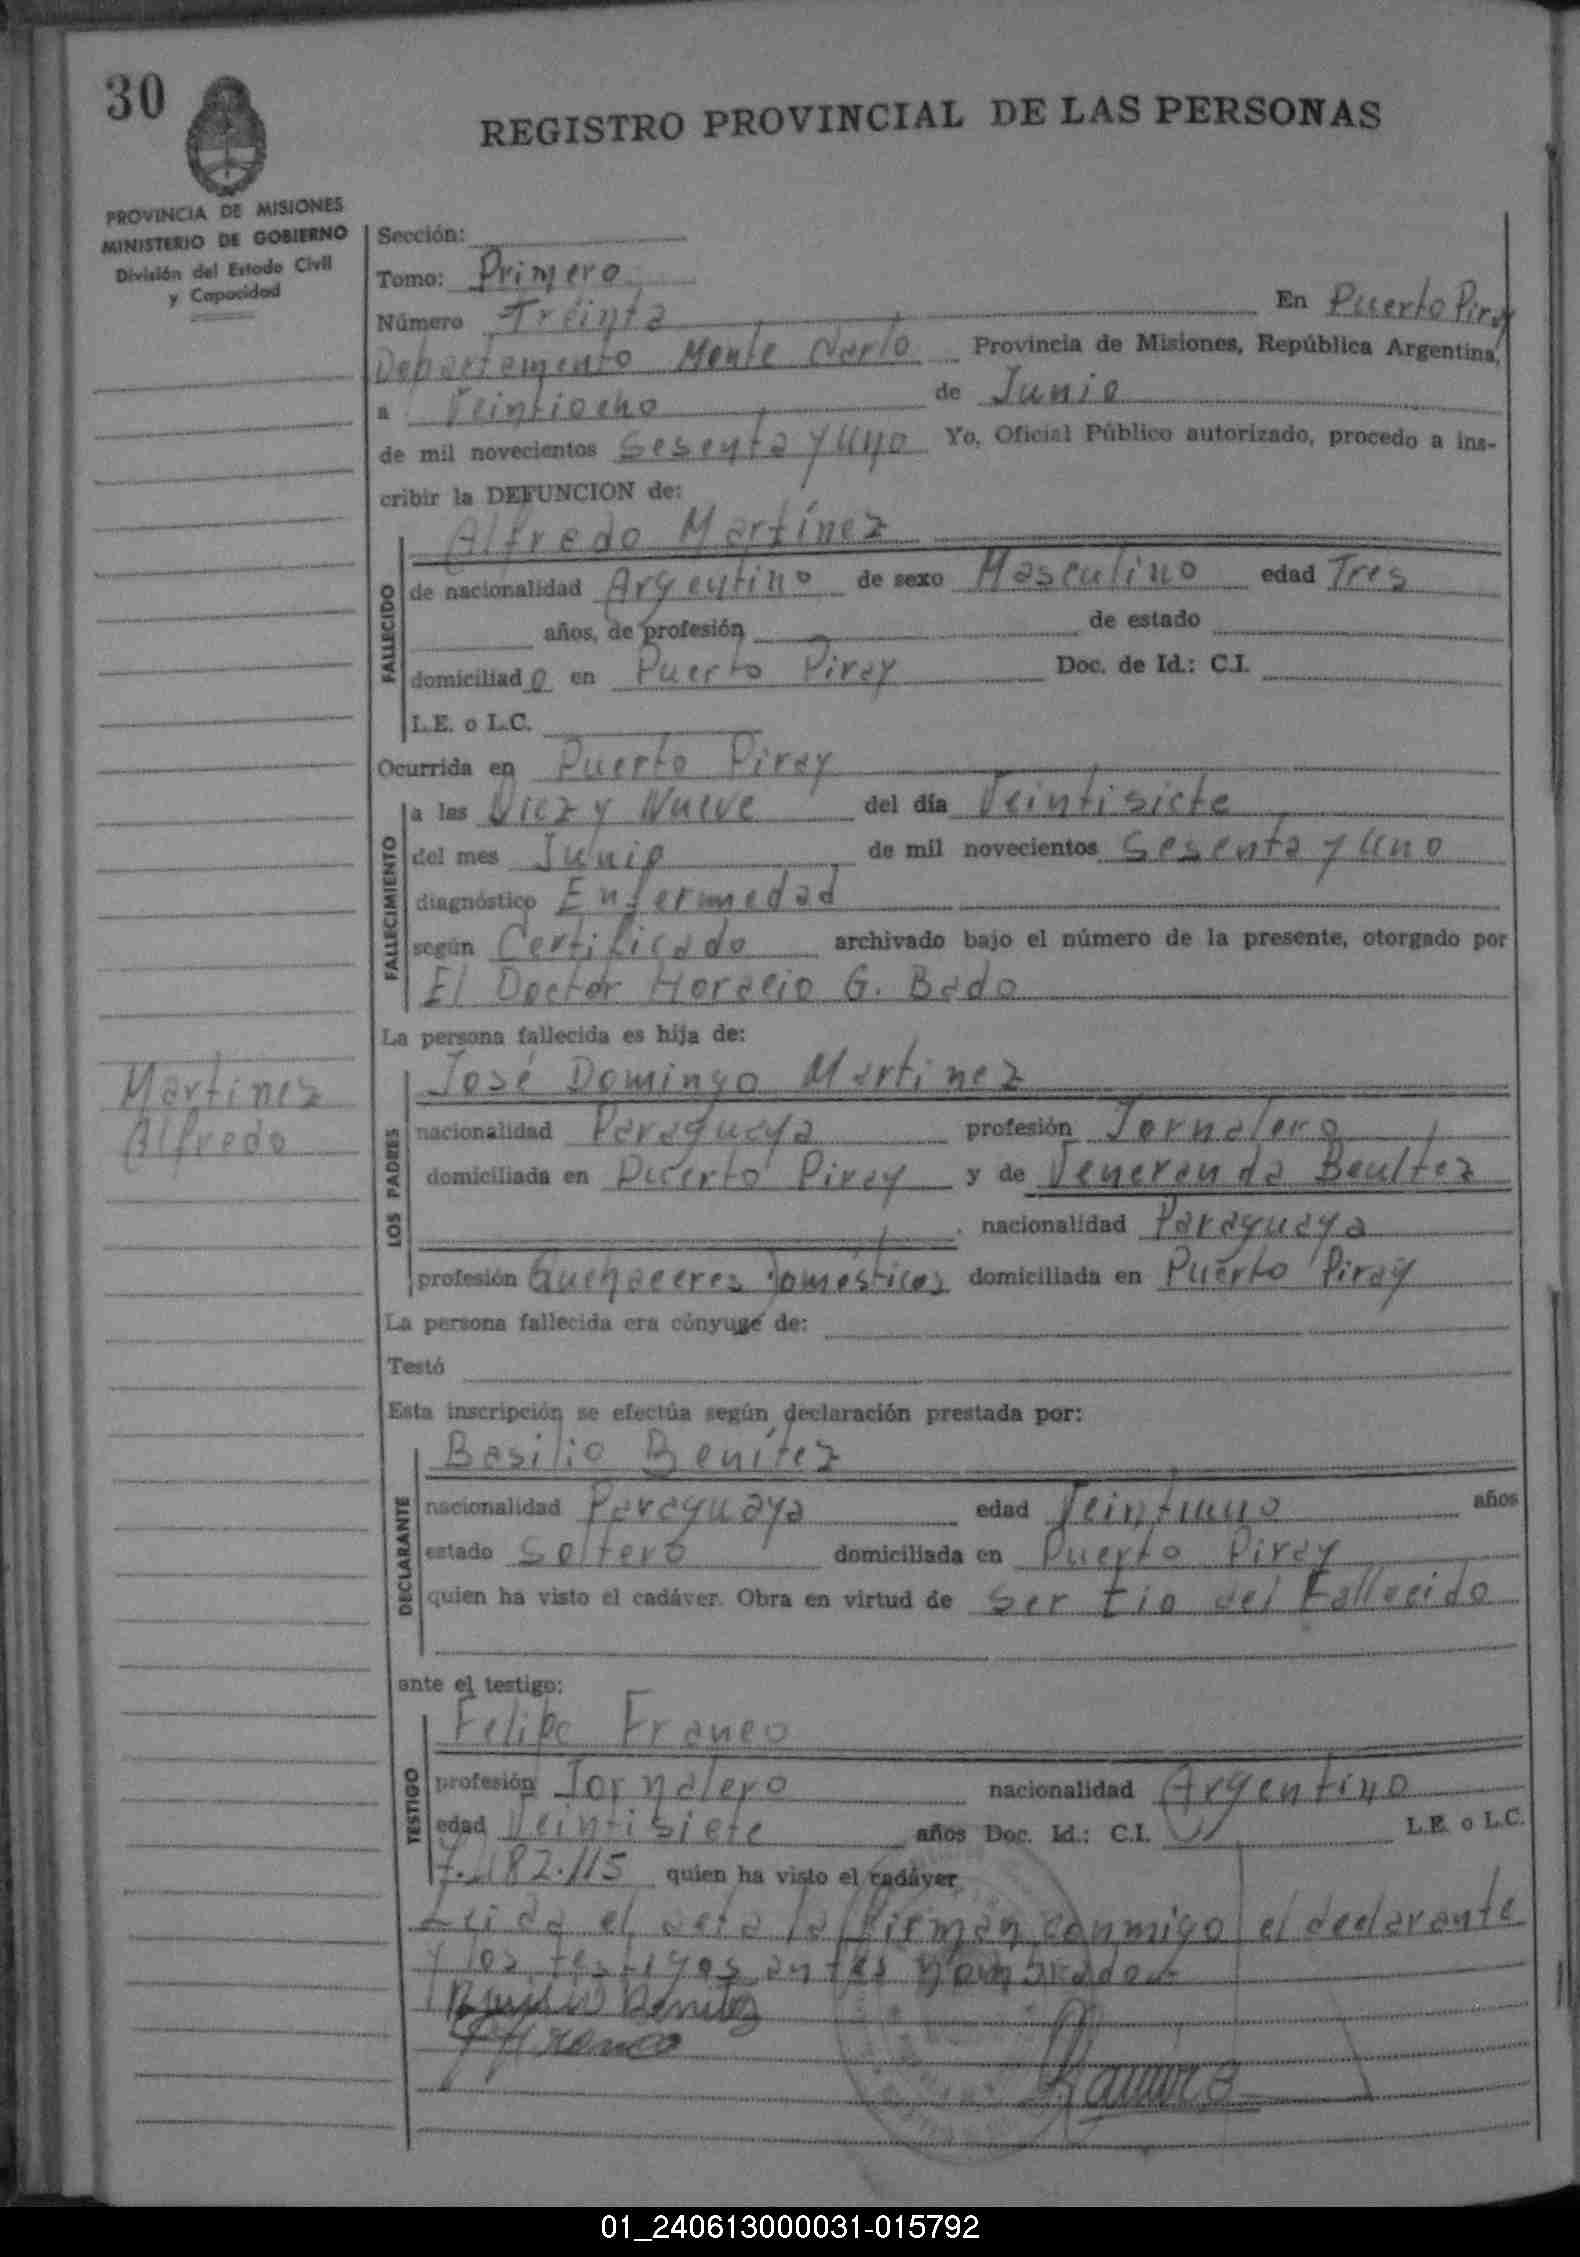 30
REGISTRO PROVINCIAL DE LAS PERSONAS
PROVINCIA DE MISIONES
MINISTERIO DE GOBIERNO
División del Estado Civil
y Capacidad
Sección:
Tomo: Primero
Número Treinta En Puerto Piray
Departamento Monte Carlo Provincia de Misiones, República Argentina,
a Veintiocho de Junio
de mil novecientos Sesenta y uno Yo, Oficial Público autorizado, procedo a ins-
cribir la DEFUNCION de:
Alfredo Martínez
FALLECIDO
de nacionalidad Argentino de sexo Masculino edad Tres
años, de profesión de estado
domiciliado en Puerto Piray Doc. de Id.: C.I.
L.E. o L.C.
Ocurrida en Puerto Piray
FALLECIMIENTO
a las Diez y Nueve del día Veintisiete
del mes Junio de mil novecientos Sesenta y uno
diagnóstico Enfermedad
según Certificado archivado bajo el número de la presente, otorgado por
El Doctor Horacio G. Bado
La persona fallecida es hija de:
Martinez
Alfredo
LOS PADRES
José Domingo Martinez
nacionalidad Paraguaya profesión Jornalero
domiciliada en Puerto Piray y de Veneranda Benítez
nacionalidad Paraguaya
profesión Quehaceres Domésticos domiciliada en Puerto Piray
La persona fallecida era cónyuge de:
Testó
Esta inscripción se efectúa según declaración prestada por:
Basilio Benítez
DECLARANTE
nacionalidad Paraguaya edad Veintiuno años
estado Soltero domiciliada en Puerto Piray
quien ha visto el cadáver. Obra en virtud de Ser tio del Fallecido
ante el testigo:
Felipe Franco
TESTIGO
profesión Jornalero nacionalidad Argentino
edad Veintisiete años Doc. Id.: C.I. L.E. o L.C.
7.482.115 quien ha visto el cadáver
Leida el acta la firman conmigo el declarante
y los testigos antes nombrados
Benitez
Franco
Ramirez
01_240613000031-015792